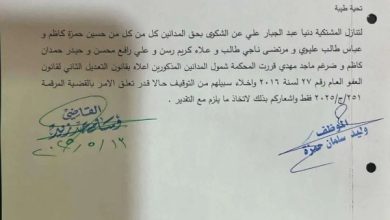 تحية طيبة
لتنازل المشتكية دنيا عبد الجبار علي عن الشكوى بحق المدانين كل من كل من حسين حمزة كاظم و
عباس طالب عليوي و مرتضى ناجي طالب و علاء كريم رسن و علي رافع محسن و حيدر حمدان
كاظم و ضرغم ماجد مهدي قررت المحكمة شمول المدانين المذكورين اعلاه بقانون التعديل الثاني لقانون
العفو العام رقم ٢٧ لسنة ٢٠١٦ واخلاء سبيلهم من التوقيف حالا قدر تعلق الامر بالقضية المرقمة
٢٥١/ج/٢٠٢٥ فقط واشعاركم بذلك لاتخاذ ما يلزم مع التقدير .
القاضي
الموظف
وليد سلمان حمزه